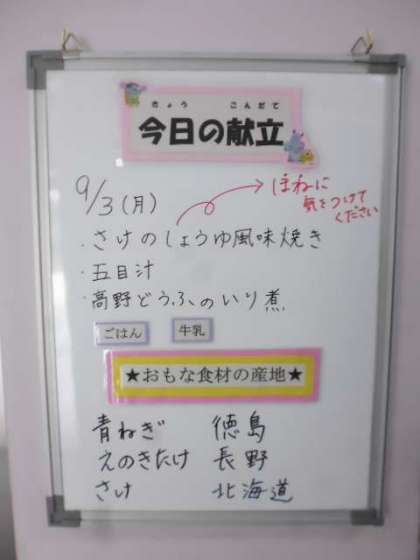 きょう こんだて
今日の献立
9/3(月)
ほねに
気をつけて
ください
・さけのしょうゆ風味焼き
・五目汁
・高野どうふのいり煮
ごはん 牛乳
★おもな食材の産地★
青ねぎ 徳島
えのきたけ 長野
さけ 北海道